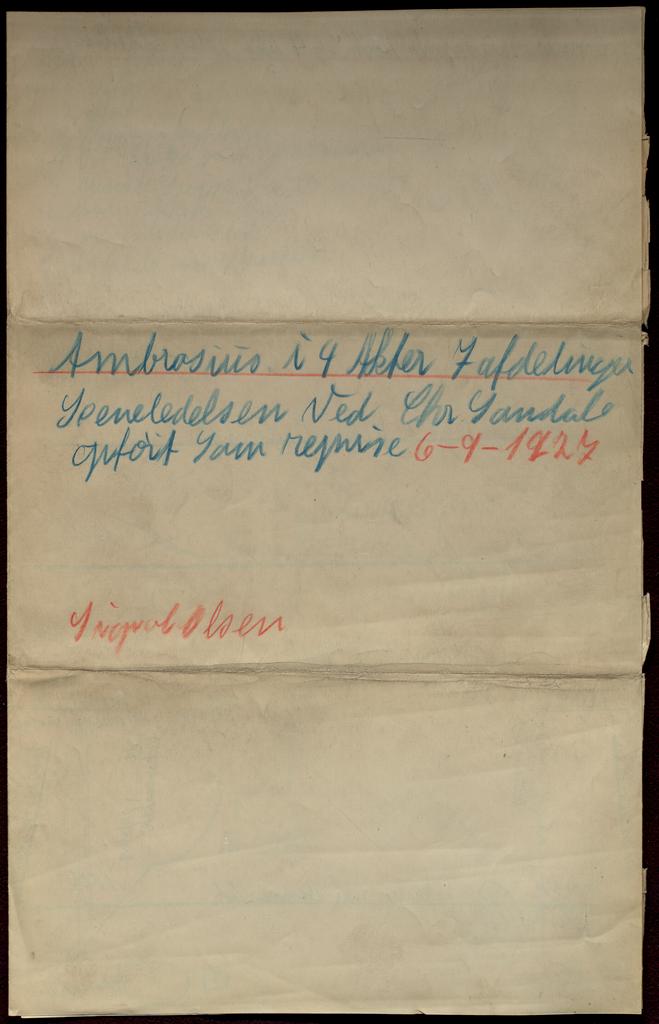 Ambrosius. i 4 Akter 7 afdelinger
Sceneledelsen Ved Chr Sandal
opfört Som reprise 6-9-1927
Sigval Olsen